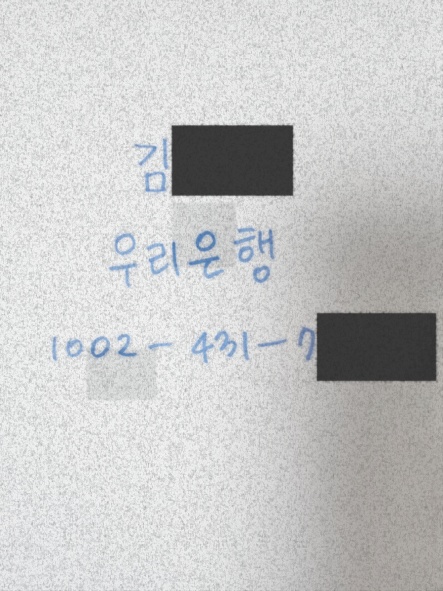 김
우리은행
1002-431-7